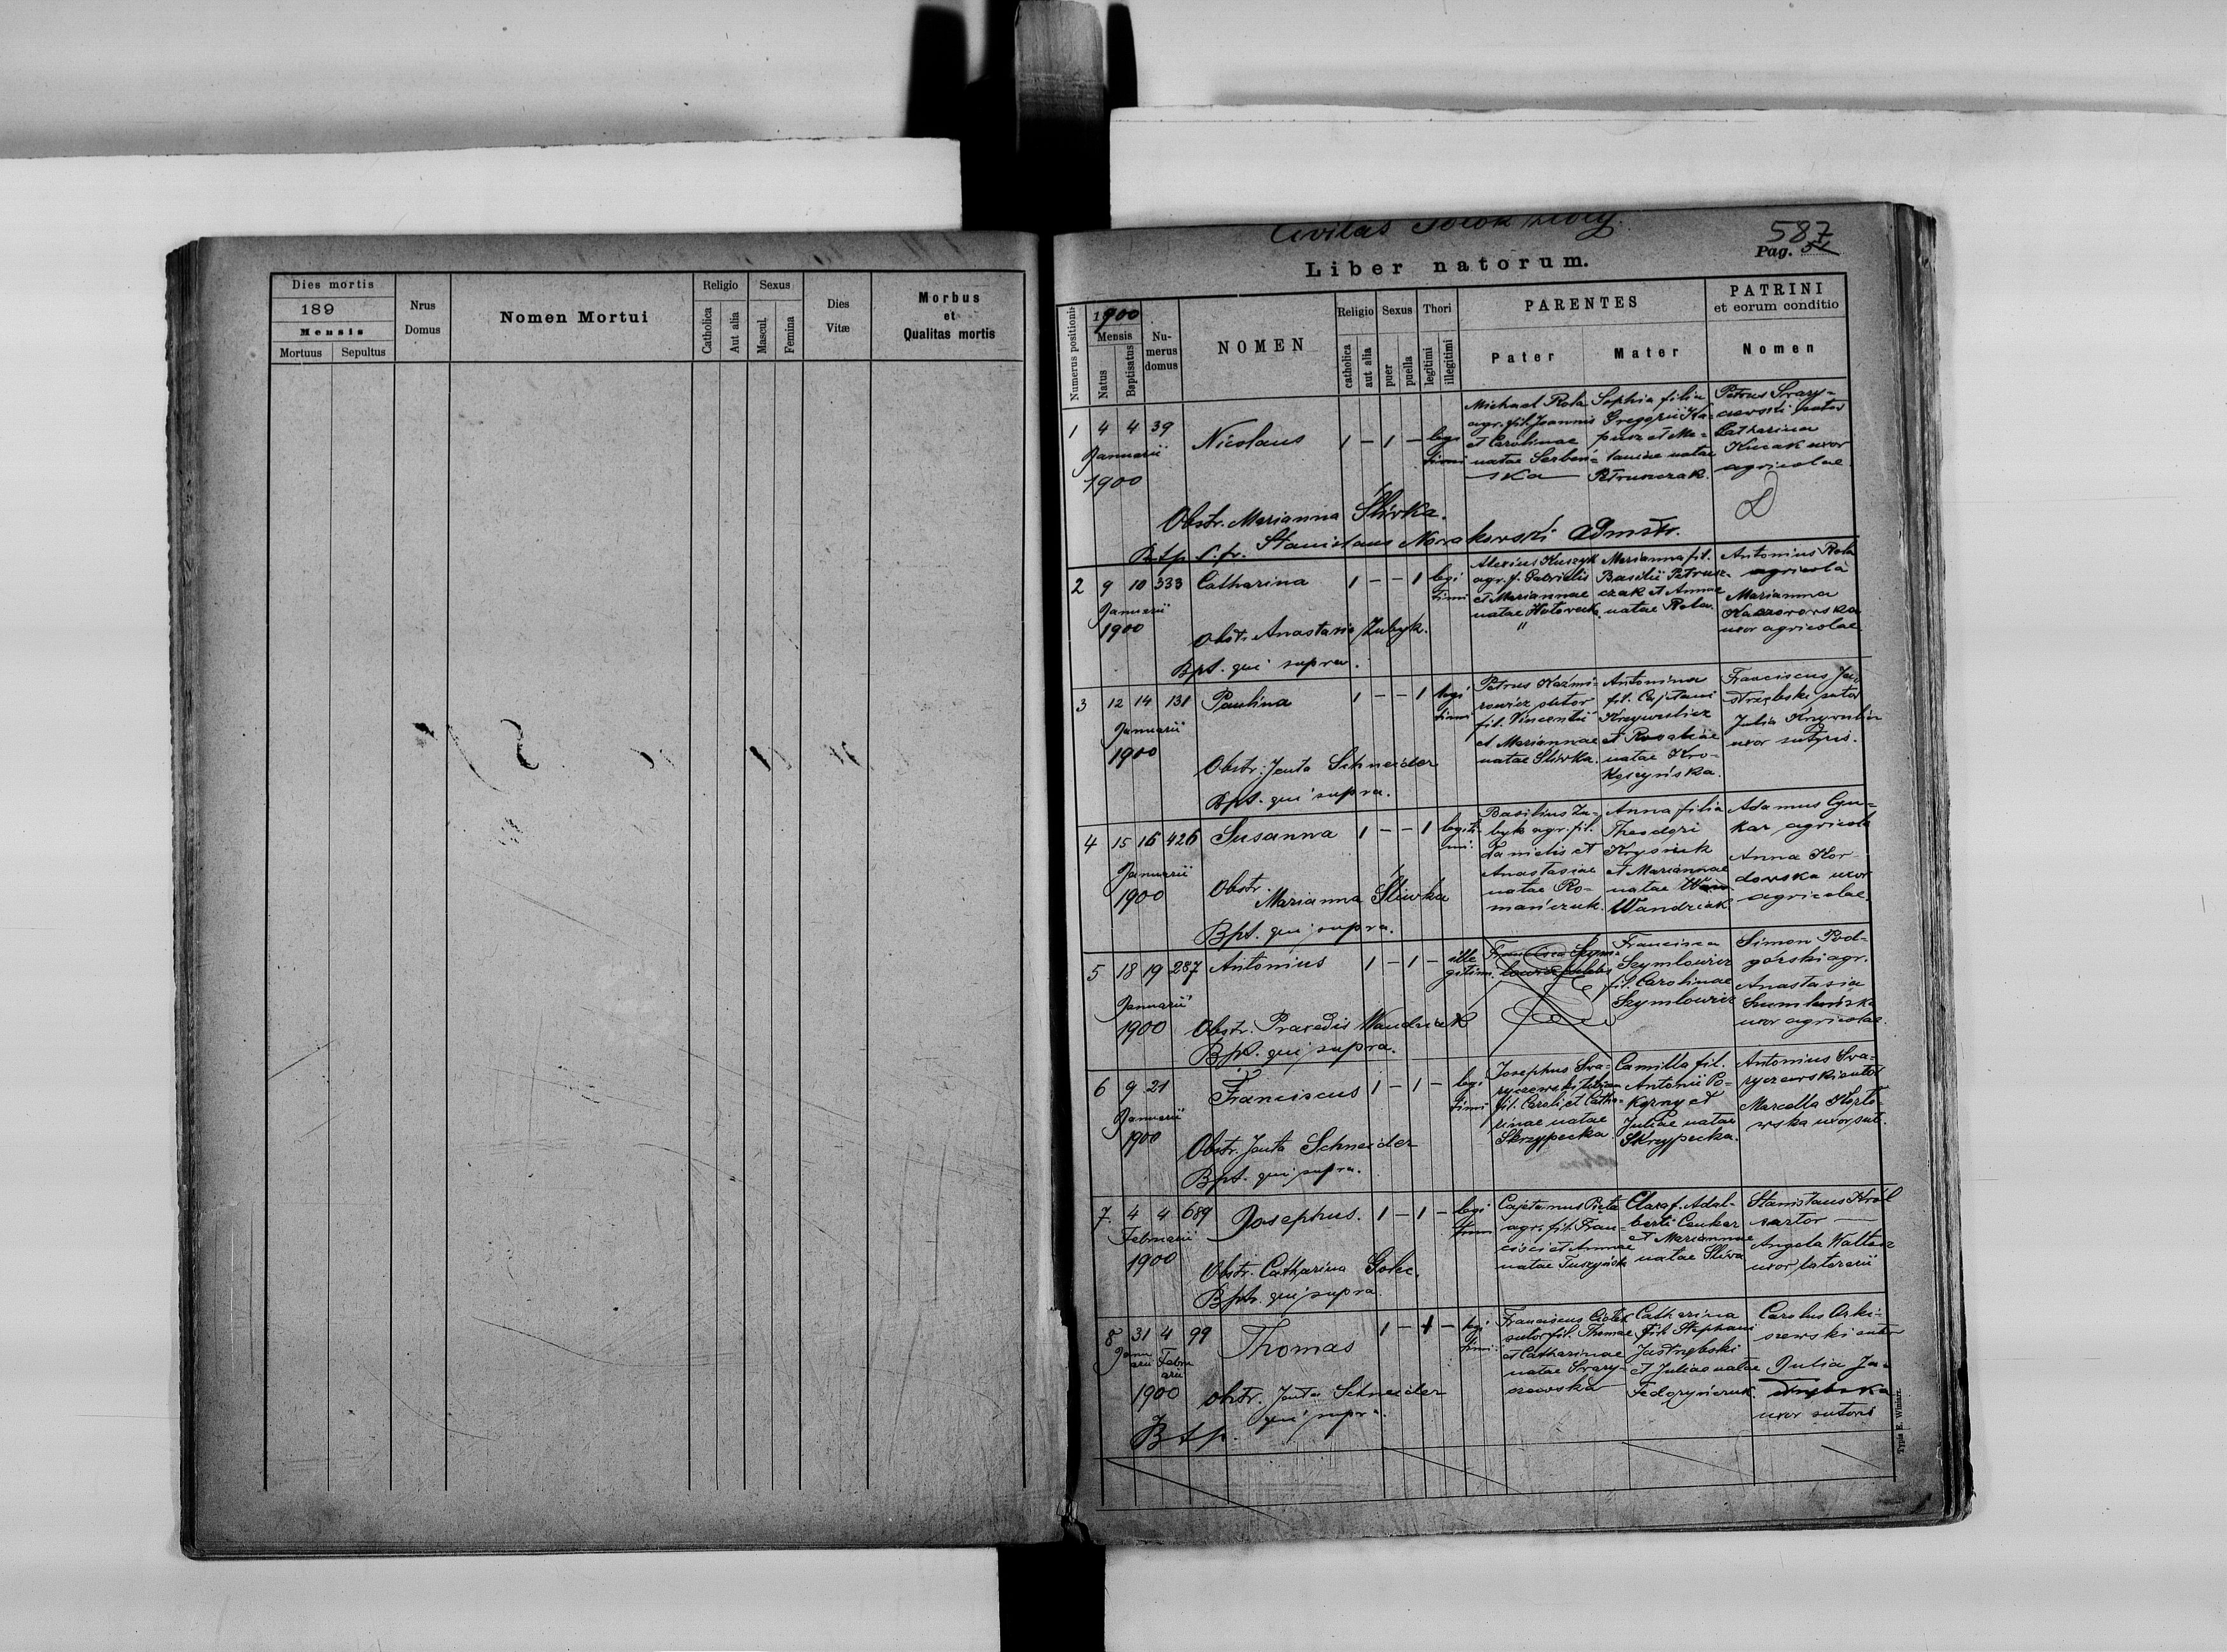 Dies mortis
189
Mensis
Mortuus Sepultus
Nrus
Domus
Nomen Mortui
Religio
Catholica
Aut alia
Sexus
Mascul.
Femina
Dies
Vitæ
Morbus
et
Qualitas mortis
Civitas Potok złoty.
587
Pag.
Liber natorum.
Numerus positionis
1900
Mensis
Natus
Baptisatus
Nu-
merus
domus
NOMEN
Religio Sexus Thori
catholica
aut alia
puer
puella
legitimi
illegitimi
PARENTES
Pater Mater
PATRINI
et eorum conditio
Nomen
1 4 4 39
Januarii
1900
Nicolaus
1 — 1 — legi
timi
Michael Rola
agr. fil. Joannis
et Carolinae
natae Serben-
ska
Sophia filia
Gregorii Ka-
pusz et Me-
laniae natae
Petruszczak.
Petrus Swary-
czewski sutor
Catharina
Kuczak uxor
agricolae.
Obstr. Marianna Śliwka.
Btp. l. fr. Stanislaus Nowakowski admstr.
2 9 10 333
Januarii
1900
Catharina
1 — — 1 legi
timi
Alexius Kuszyk
agr. f. Gabrielis
et Mariannae
natae
Marianna fil.
Basilii Petrusz-
czak et Annae
natae Rola.
Antonius Rola
agricola
Marianna
Kaczorowska
uxor agricolae
Obstr. Anastasia Zubyk.
Bpt. qui supra.
3 12 14 131
Januarii
1900
Paulina
1 — — 1 legi
timi
Petrus Kaźmi-
rowicz sutor
fil. Vincentii
et Mariannae
natae Śliwka.
Antonina
fil. Cajetani
et Rosaliae
natae Kro-
Franciscus Ja-
strzębski sutor
Julia
uxor sutoris.
Obstr. Jenta Schneider
Bpt. qui supra.
4 15 16 426
Januarii
1900
Susanna
1 — — 1 legiti
mi.
Basilius Zu-
byk agr. fil.
Danielis et
Anastasiae
natae Ro-
mańczuk.
Anna filia
Theodori
Krysiuk
et Mariannae
natae
Wandziak
Adamus Cyn-
kar agricola
Anna Kor-
dowska uxor
agricolae.
Obstr.
Marianna Śliwka
Bpt. qui supra.
5 18 19 287
Januarii
1900
Antonius
1 — 1 — ille
gitimi.
Francisca
Szymlowicz
fil. Carolinae
Szymlowicz
Simon Pod-
górski agr.
Anastasia
Szumlańska
uxor agricolae.
Obstr. Praxedis Wandziak
Bpt. qui supra.
6 9 21
Januarii
1900
Franciscus
1 — 1 — legi
timi
Josephus Swa-
ryczewski
fil. Caroli et Catha-
rinae natae
Skrzypecka
Camilla fil.
Antonii Po-
korny et
Juliae natae
Skrzypecka.
Antonius Swa-
ryczewski sutor
Marcella
uxor sut.
Obstr. Jenta Schneider
Bpt. qui supra.
7. 4 4 689
Februarii
1900
Josephus.
1 — 1 — legi
timi
Cajetanus
agr. fil. Fran-
cisci et Annae
natae Tuszyńska
Clara f. Adal-
berti Caukar
et Mariannae
natae Śliwa
Stanislaus Król
sartor
Angela
uxor laterarii
Obstr. Catharina Golec.
Bpt. qui supra
8 31 4 99
Janu
arii Febru
arii
1900
Thomas
1 — 1 — legi
timi.
Franciscus Ciołek
sutor fil. Thomae
et Catharinae
natae Swary-
czewska
Catharina
fil. Stephani
Jastrzębski
et Juliae natae
Fedoryńczuk.
Carolus Arki-
szewski sutor
Julia Ja-
strzębska
uxor sutoris
obstr. Jenta Schneider
Btp. qui supra.
Typis E. Winiarz.